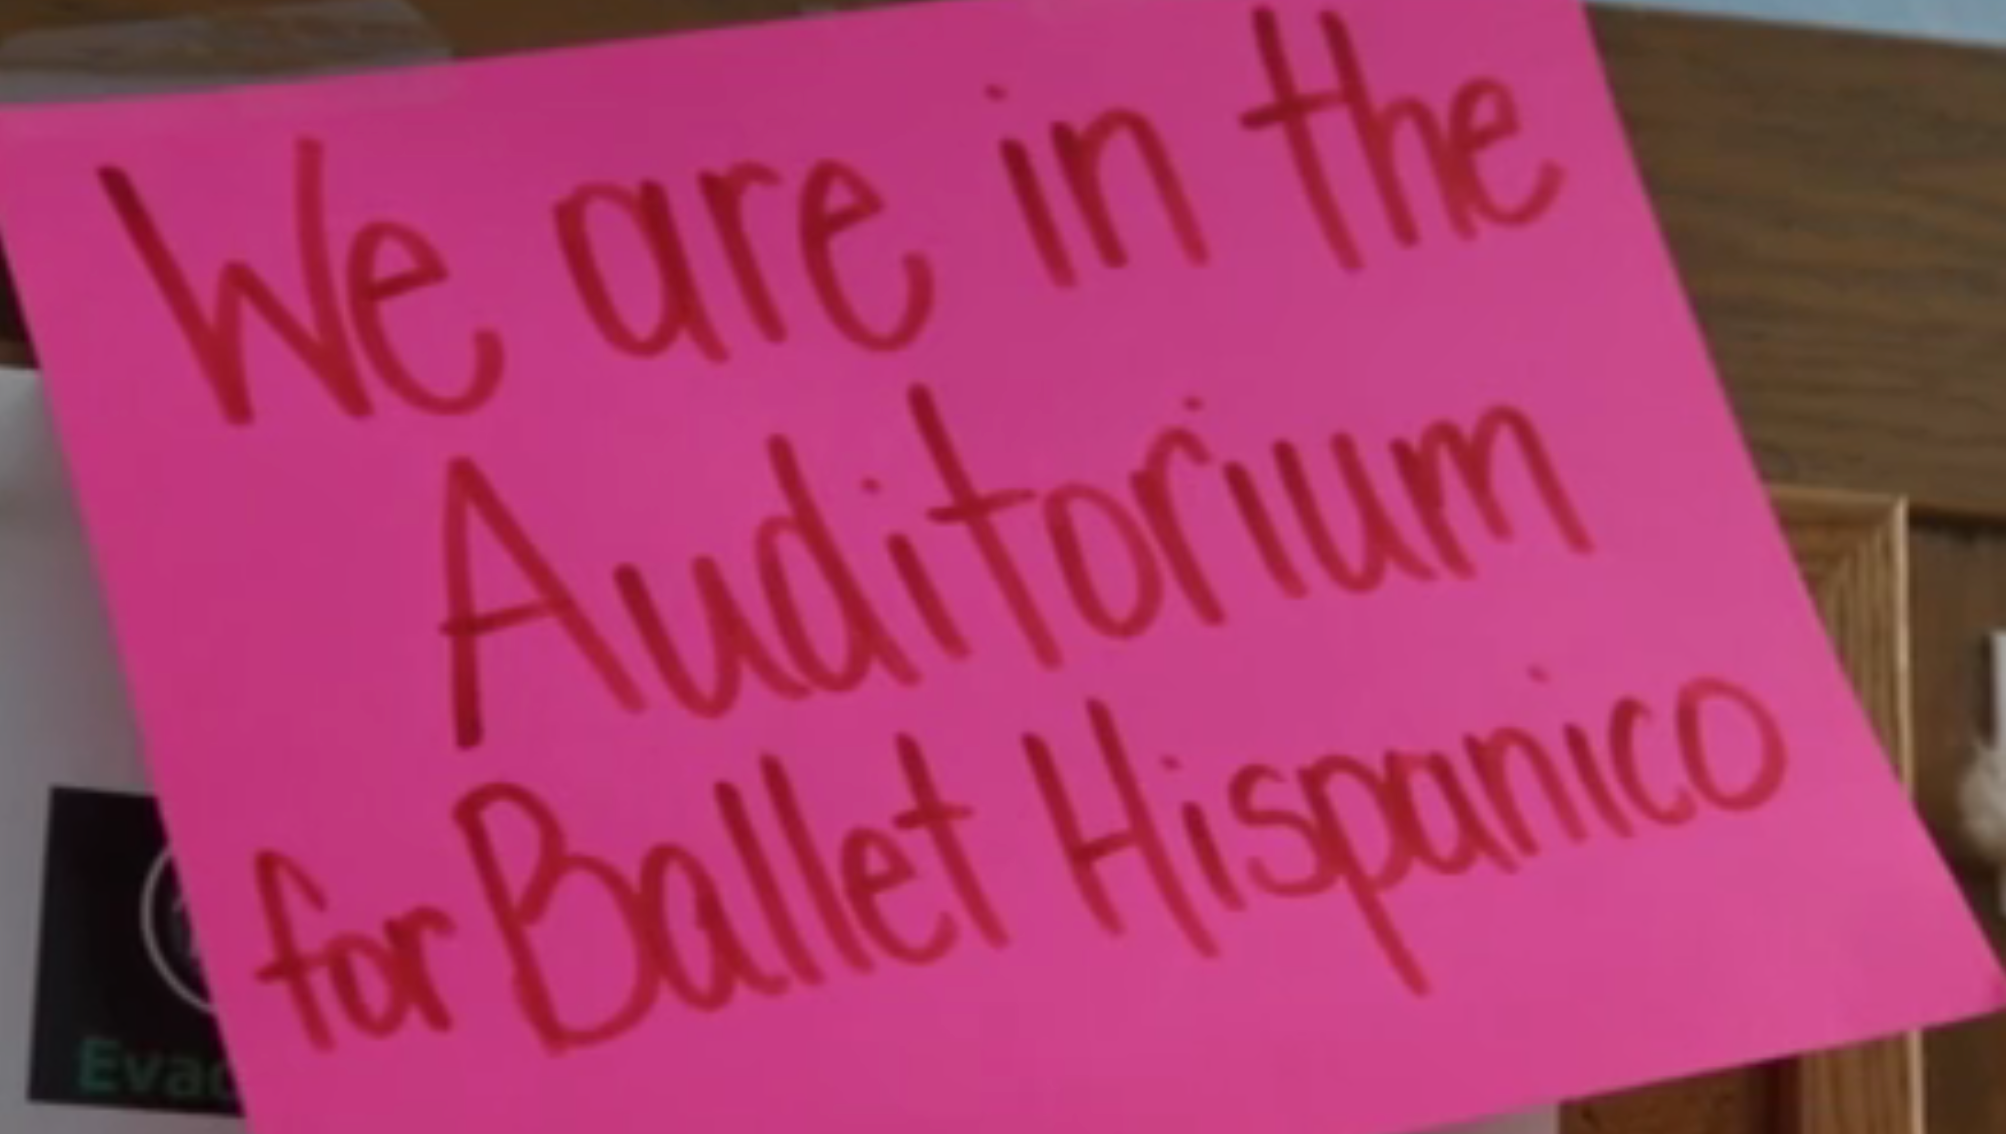 We are in the
Auditorium
for Ballet Hispanico
Evac